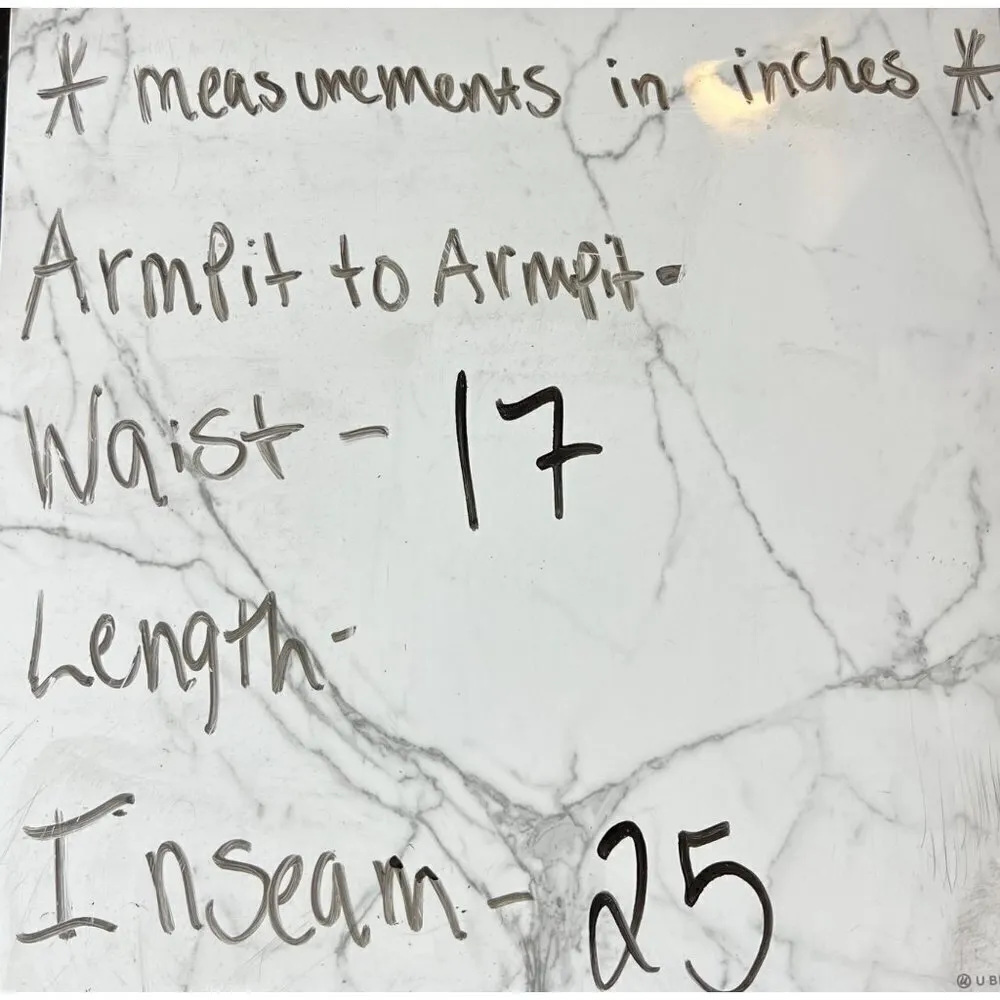 * measurements in inches *
ArmPit to Armpit -
Waist - 17
Length -
Inseam - 25